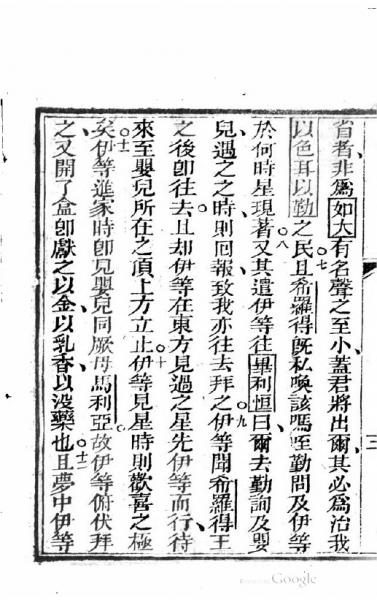 省者、非爲如大有名聲之至小蓋君將出爾、其必爲治我
以色耳以勒之民且○七希羅得旣私喚該嗎至勤問及伊等
於何時星現著○八又其遣伊等往畢利恒曰爾去勤詢及嬰
兒、遇之之時、則回報致我亦往去拜之○九伊等聞希羅得王
之後卽往去○且却伊等在東方見過之星先伊等而行、待
來至嬰兒所在之頂上方立止○十伊等見星時則歡喜之極
矣○十一伊等進家時卽見嬰兒同厥母馬利亞、故伊等俯伏拜
之、又開了盒卽獻之以金、以乳香、以沒藥也○十二且夢中伊等
三
Google